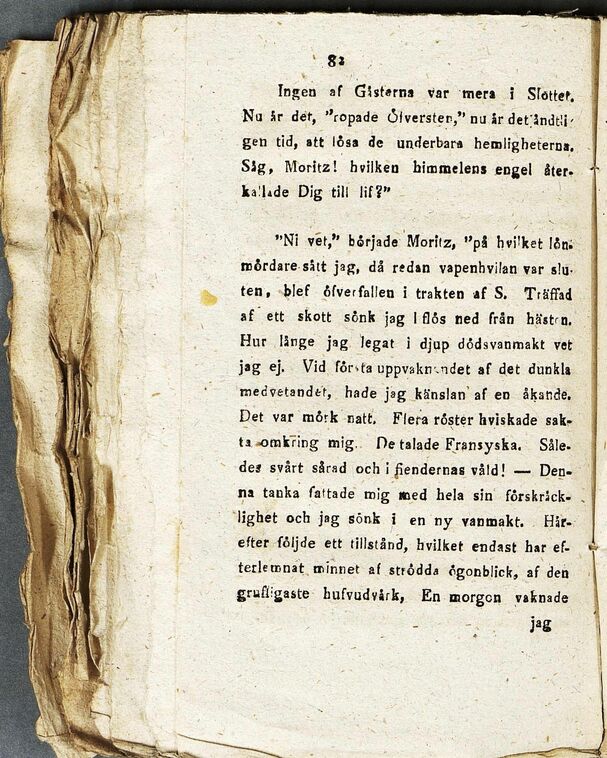 82
Ingen af Gåsterna var mera i Slottet.
Nu år det, "ropade Öfversten," nu år det åndtli-
gen tid, att lósa de underbara hemligheterna.
Såg, Moritz! hvilken himmelens engel åter-
kallade Dig till lif?"
"Ni vet," bórjade Moritz, "på hvilket lón-
mórdare-sått jag, då redan vapenhvilan var slu-
ten, blef ófverfallen i trakten af S. Tråffad
af ett skott sónk jag llós ned från håsten.
Hur långe jag legat i djup dódsvanmakt vet
jag ej. Vid fórsta uppvaknandet af det dunkla
medvetandet, hade jag kånslan af en åkande.
Det var mórk natt. Flera róster hviskade sak-
ta omkring mig. De talade Fransyska. Såle-
des svårt sårad och i fiendernas våld! — Den-
na tanka fattade mig med hela sin fórskråck-
lighet och jag sónk i en ny vanmakt. Hår-
efter fóljde ett tillstånd, hvilket endast har ef-
terlemnat minnet af stródda ógonblick, af den
grufligaste hufvudvårk, En morgon vaknade
jag